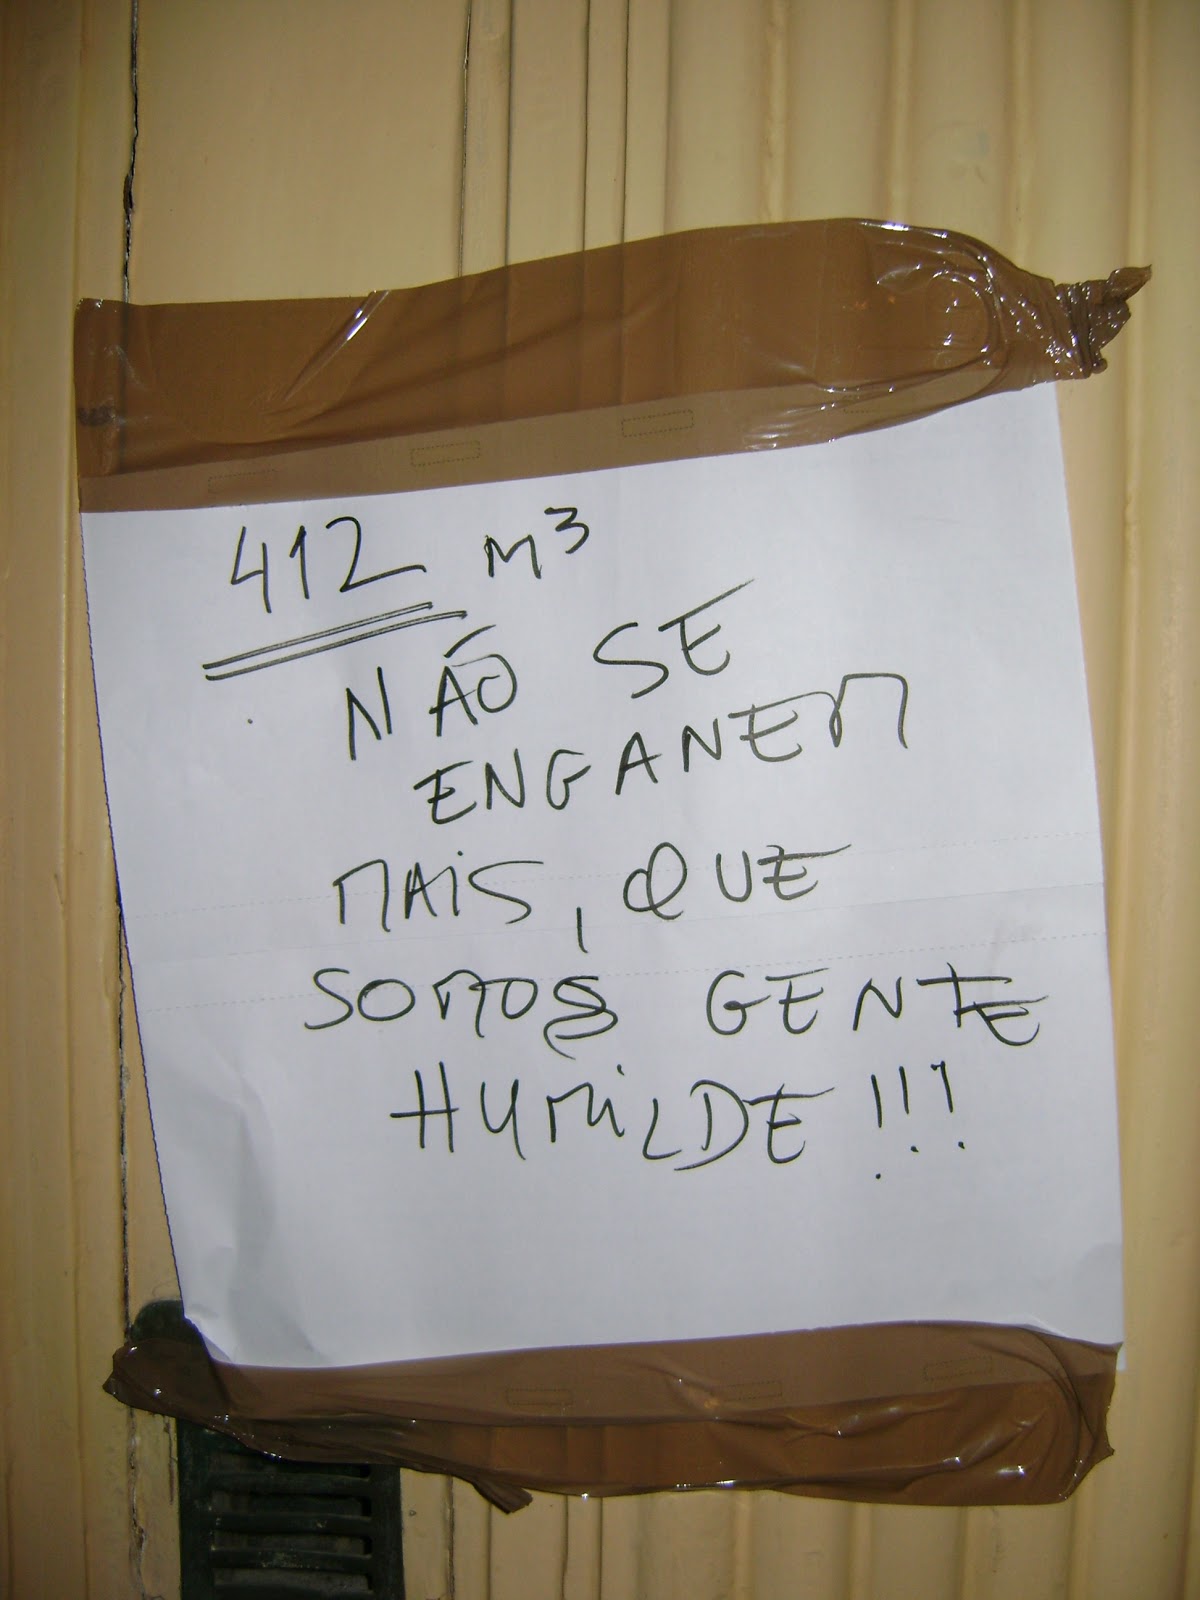 412 m³
NÃO SE
ENGANEM
MAIS, QUE
SOMOS GENTE
HUMILDE!!!